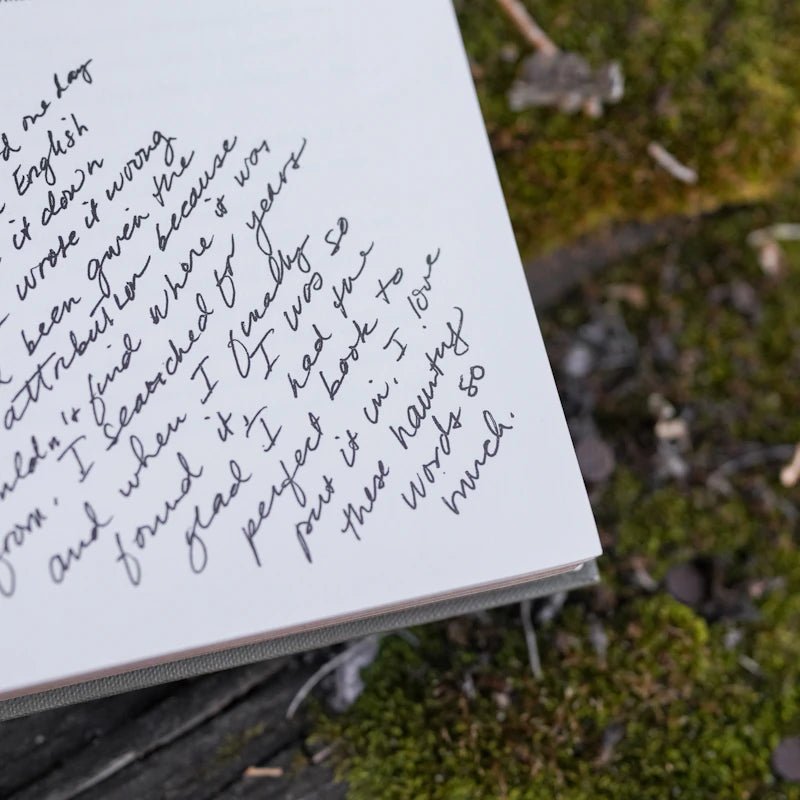 d one day
English
it down
wrote it wrong
been given the
attribution because
uldn't find where it was
from. I searched for years
and when I finally
found it, I was so
glad I had the
perfect book to
put it in. I love
these haunting
words so
much.